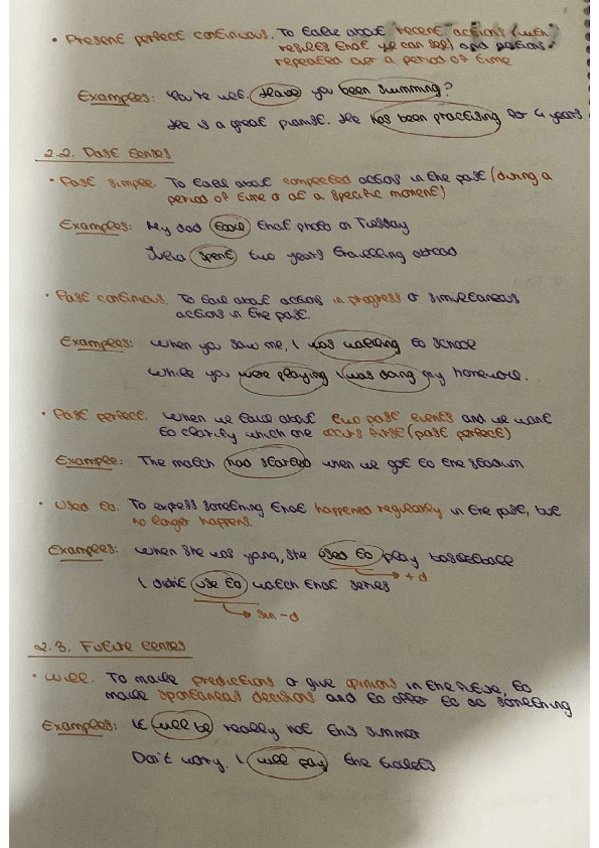 • Present perfect continuous. To talk about recent actions (with
results that we can see) and actions
repeated over a period of time
Examples: You're wet. Have you been swimming?
He is a great pianist. He has been practising for 4 years
2.2. Past tenses
• Past simple. To talk about completed actions in the past (during a
period of time or at a specific moment)
Examples: My dad took that photo on Tuesday
Julia spent two years travelling abroad
• Past continuous. To talk about actions in progress or simultaneous
actions in the past.
Examples: When you saw me, I was walking to school
While you were playing I was doing my homework.
• Past perfect. When we talk about two past events and we want
to clarify which one occurs first (past perfect)
Example: The match had started when we got to the stadium
• Used to. To express something that happened regularly in the past, but
no longer happens.
Examples: When she was young, she used to play basketball
→ +d
I didn't use to watch that series
→ sin -d
2.3. Future tenses
• Will. To make predictions or give opinions in the future, to
make spontaneous decisions and to offer to do something
Examples: It will be really hot this summer
Don't worry. I will pay the tickets